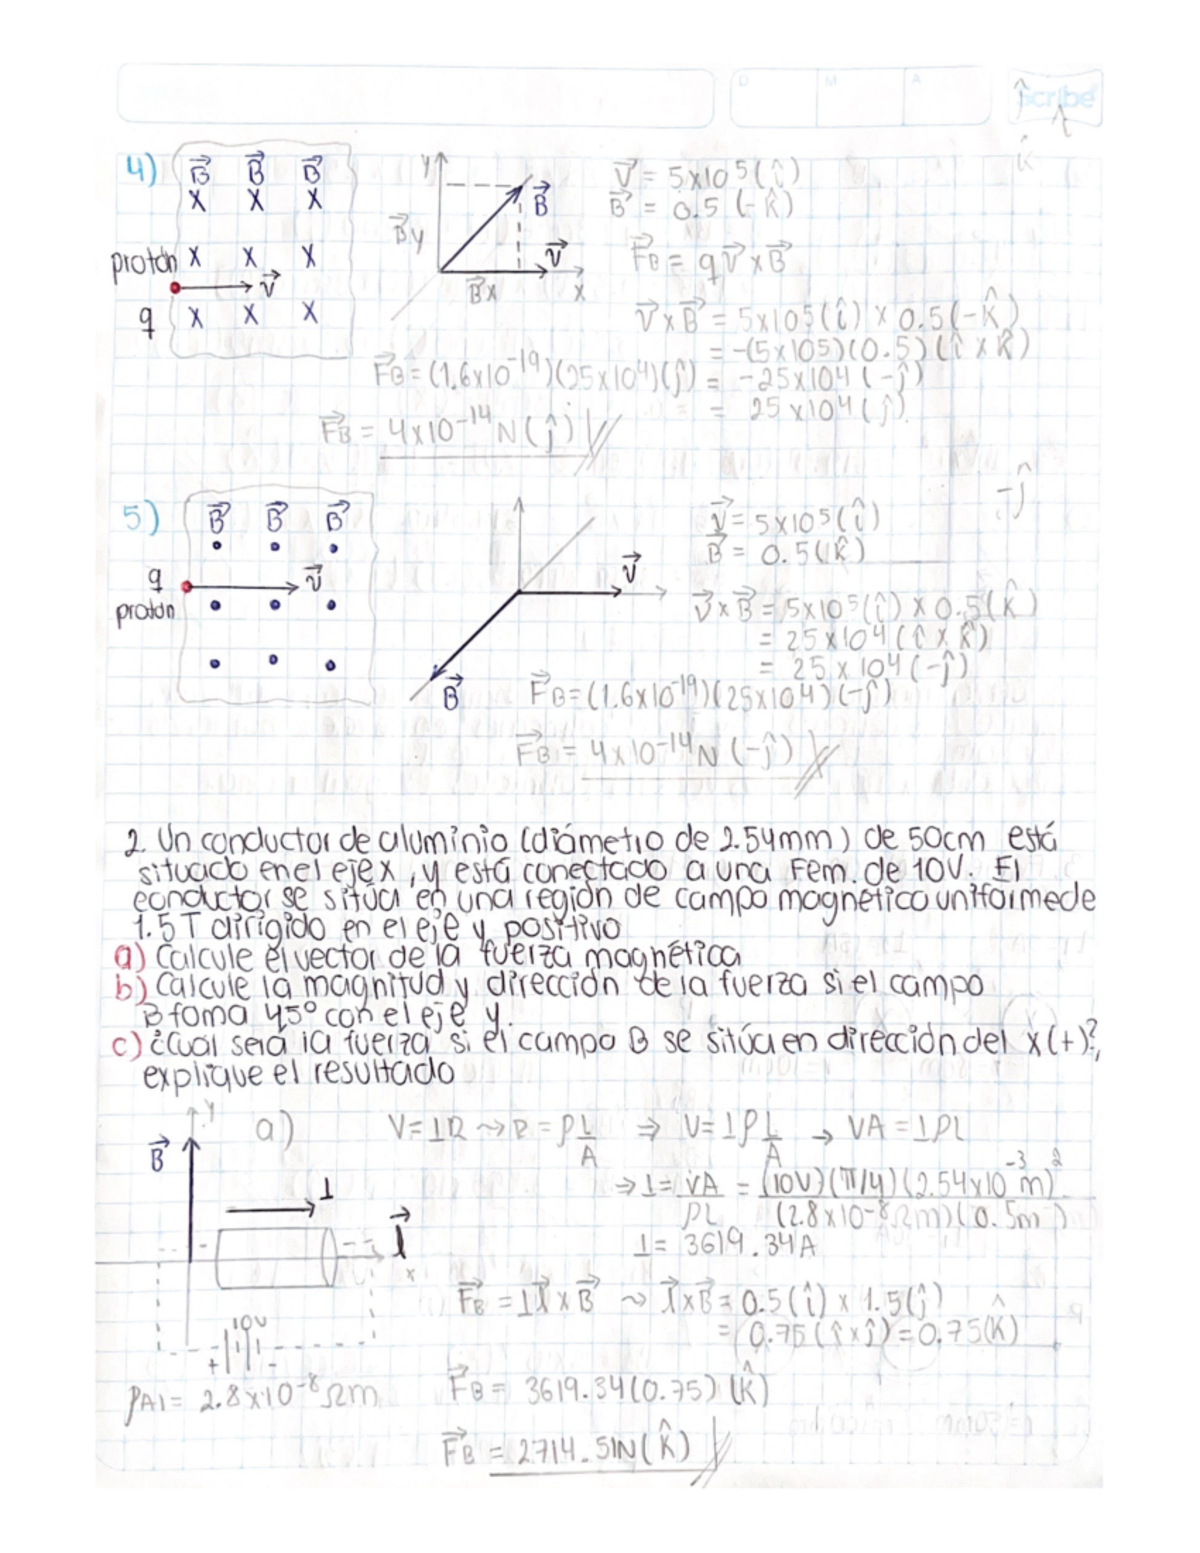 D M A
Scribe
ĵ
k̂
4) B⃗ B⃗ B⃗
X X X
protón X X X
v⃗
q X X X
y B⃗
B⃗y v⃗
B⃗x x
v⃗ = 5x10⁵(î)
B⃗ = 0.5 (-k̂)
F⃗B = q v⃗ x B⃗
v⃗ x B⃗ = 5x105(î) x 0.5(-k̂)
= -(5x105)(0.5)(î x k̂)
F⃗B = (1.6x10⁻¹⁹)(25x10⁴)(ĵ) = -25x104 (-ĵ)
= 25x104(ĵ)
F⃗B = 4x10⁻¹⁴N(ĵ)
-ĵ
5) B⃗ B⃗ B⃗
q v⃗
protón
v⃗
B⃗
v⃗ = 5x10⁵(î)
B⃗ = 0.5(k̂)
v⃗ x B⃗ = 5x10⁵(î) x 0.5(k̂)
= 25x10⁴(î x k̂)
= 25x10⁴(-ĵ)
F⃗B = (1.6x10⁻¹⁹)(25x10⁴)(-ĵ)
F⃗B = 4x10⁻¹⁴N (-ĵ)
2. Un conductor de aluminio (diámetro de 2.54mm) de 50cm está
situado en el eje x, y está conectado a una Fem. de 10V. El
conductor se sitúa en una región de campo magnético uniforme de
1.5 T dirigido en el eje y positivo
a) Calcule el vector de la fuerza magnética
b) Calcule la magnitud y dirección de la fuerza si el campo
B foma 45° con el eje y.
c) ¿Cual seria la fuerza si el campo B se sitúa en dirección del x(+)?,
explique el resultado
y a) V=IR ⤳ R = ρL/A ⇒ V=IρL/A → VA = IρL
B⃗
I
⇒ I = VA/ρL = (10V)(π/4)(2.54x10⁻³m)²/(2.8x10⁻⁸Ωm)(0.5m)
l⃗
x
I = 3619.34A
F⃗B = Il⃗ x B⃗ ⤳ l⃗ x B⃗ = 0.5(î) x 1.5(ĵ)
= 0.75(î x ĵ) = 0.75(k̂)
10V
+ -
ρAl = 2.8x10⁻⁸Ωm
F⃗B = 3619.34(0.75)(k̂)
F⃗B = 2714.51N(k̂)